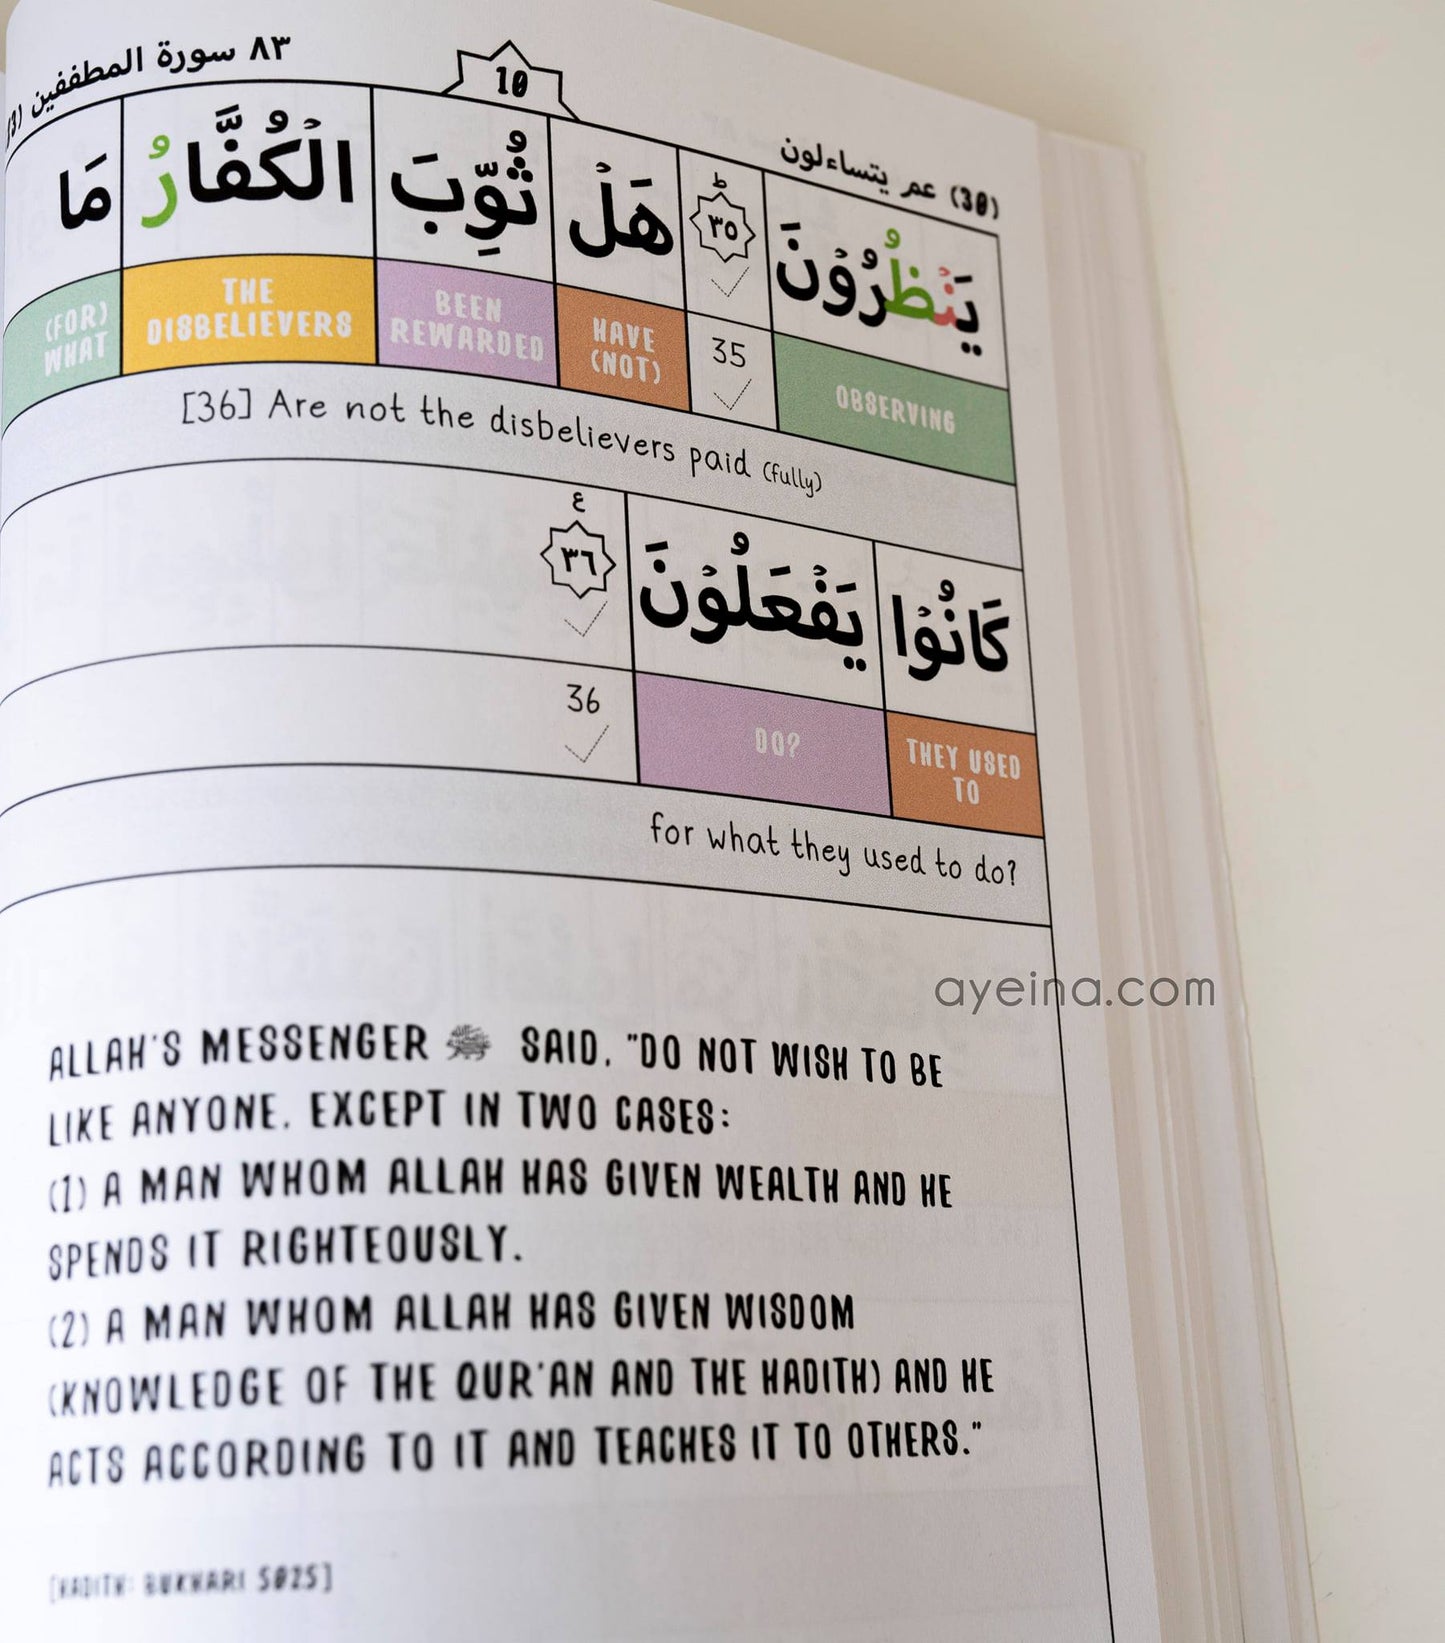 ٨٣ سورة المطففين
10
(30) عم يتساءلون
يَنْظُرُوْنَ ط ٣٥ هَلْ ثُوِّبَ الْكُفَّارُ مَا
OBSERVING 35 HAVE (NOT) BEEN REWARDED THE DISBELIEVERS (FOR) WHAT
[36] Are not the disbelievers paid (fully)
كَانُوْا يَفْعَلُوْنَ ع ٣٦
THEY USED TO DO? 36
for what they used to do?
ayeina.com
ALLAH'S MESSENGER ﷺ SAID, "DO NOT WISH TO BE
LIKE ANYONE, EXCEPT IN TWO CASES:
(1) A MAN WHOM ALLAH HAS GIVEN WEALTH AND HE
SPENDS IT RIGHTEOUSLY.
(2) A MAN WHOM ALLAH HAS GIVEN WISDOM
(KNOWLEDGE OF THE QUR'AN AND THE HADITH) AND HE
ACTS ACCORDING TO IT AND TEACHES IT TO OTHERS."
[HADITH: BUKHARI 5025]